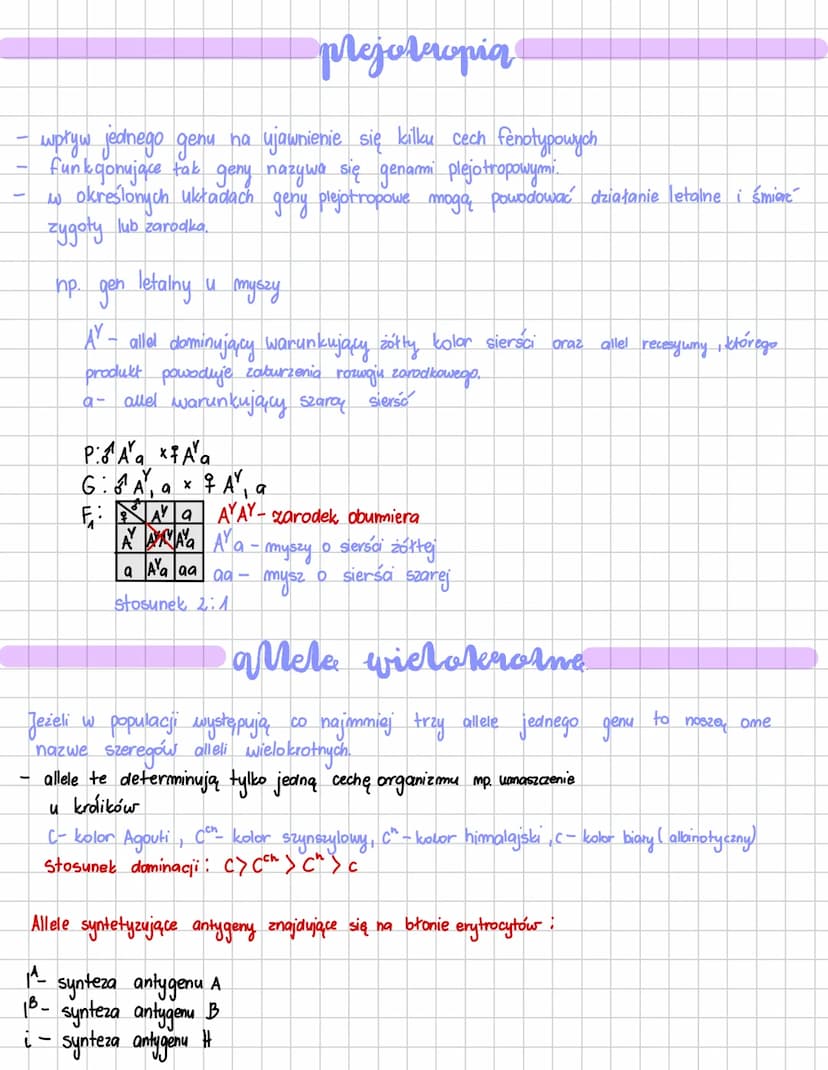 plejotropia
- wpływ jednego genu na ujawnienie się kilku cech fenotypowych
- funkcjonujące tak geny nazywa się genami plejotropowymi.
- w określonych układach geny plejotropowe mogą powodować działanie letalne i śmierć
zygoty lub zarodka.
np. gen letalny u myszy
Aʸ - allel dominujący warunkujący żółty kolor sierści oraz allel recesywny, którego
produkt powoduje zaburzenia rozwoju zarodkowego.
a - allel warunkujący szarą sierść
P: ♂ Aʸa x ♀ Aʸa
G: ♂ Aʸ, a x ♀ Aʸ, a
F₁: ♀ ♂ Aʸ a AʸAʸ - zarodek obumiera
Aʸ AʸAʸ Aʸa Aʸa - myszy o sierści żółtej
a Aʸa aa aa - mysz o sierści szarej
stosunek 2:1
allele wielokrotne
Jeżeli w populacji występują co najmniej trzy allele jednego genu to noszą one
nazwe szeregów alleli wielokrotnych.
- allele te determinują tylko jedną cechę organizmu np. umaszczenie
u królików
C- kolor Agouti, Cᶜʰ- kolor szynszylowy, Cʰ - kolor himalajski, c - kolor biały (albinotyczny)
Stosunek dominacji: C > Cᶜʰ > Cʰ > c
Allele syntetyzujące antygeny znajdujące się na błonie erytrocytów:
Iᴬ- synteza antygenu A
Iᴮ- synteza antygenu B
i - synteza antygenu H